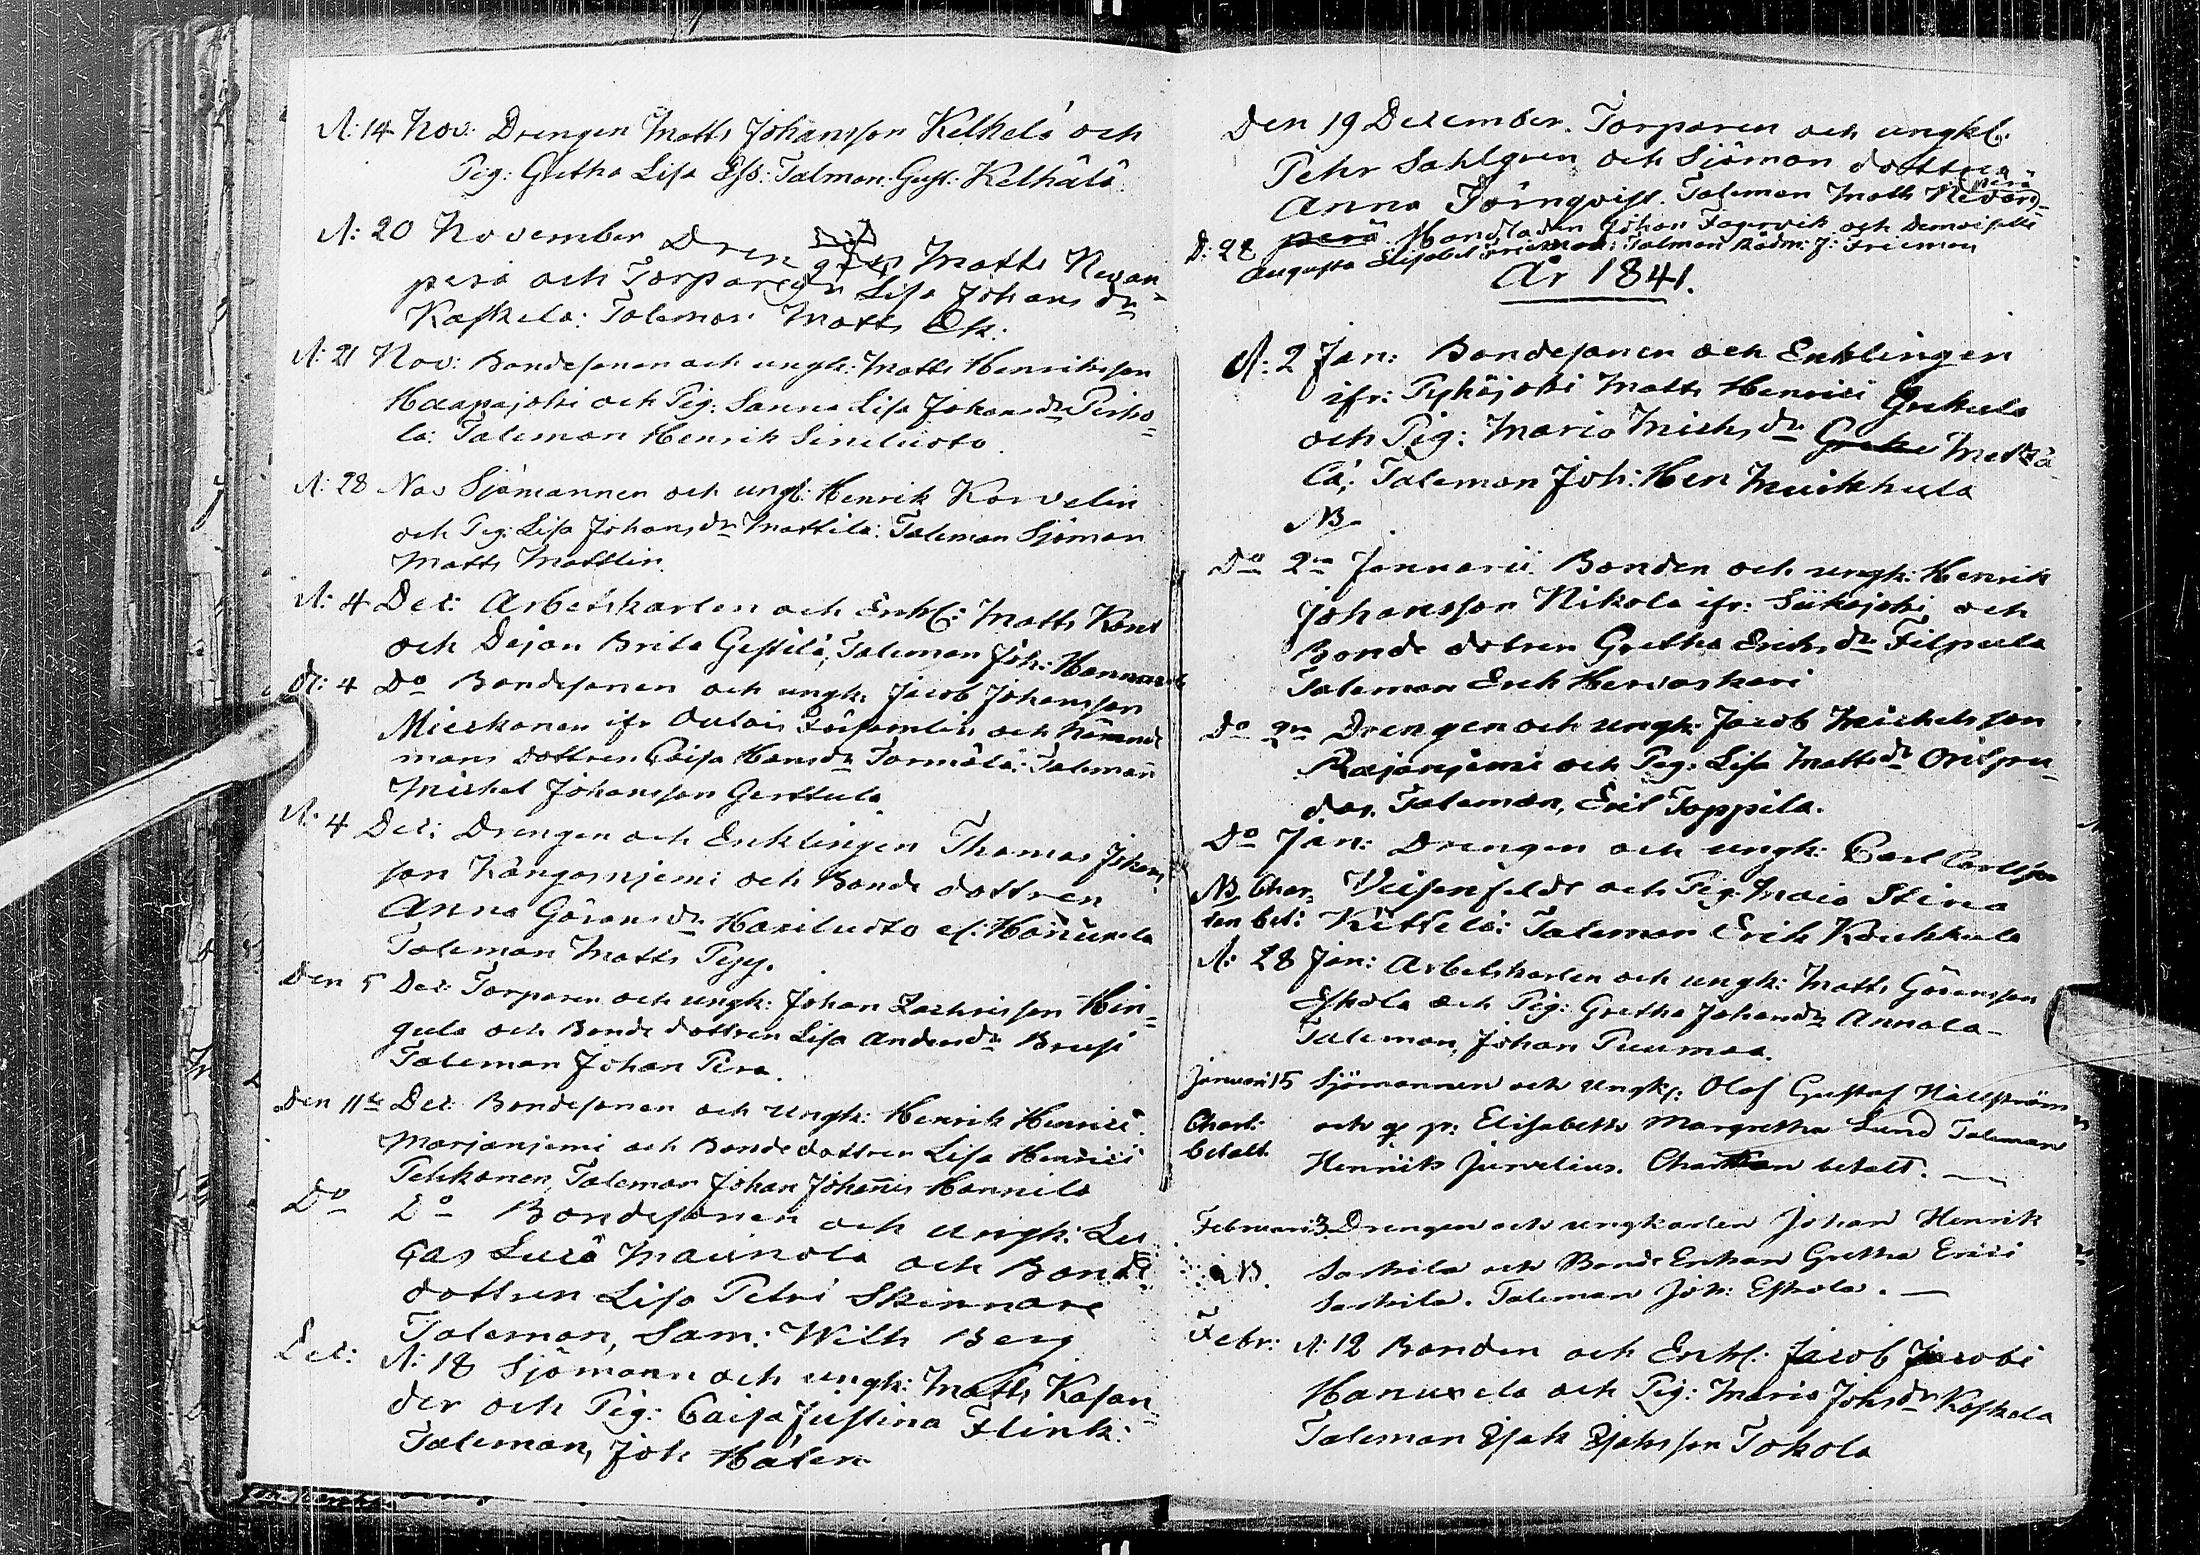 d: 14 Nov: Drengen Matts Johansson Kelhelä och
Pig: Gretha Lisa Ess: Talman Gust: Kelhälä
d: 20 November Drengen Matts Nevan=
perä och Torpare dr Lisa Johans dr
Kaskela: Taleman Matts Ek:
d: 21 Nov: Bondesonen och ungk: Matts Henriksson
Haapajoki och Pig: Sanna Lisa Johans dr Pirho=
la: Taleman Henrik Siniluoto.
d: 28 Nov Sjömannen och ungk: Henrik Korvelin
och Pig: Lisa Johans dr Mattila: Taleman Sjöman
Matts Mattlin.
d: 4 Dec: Arbetskarlen och Enkl: Matts Kont
och Dejan Brita Gestilä, Taleman Joh: Hannu
d: 4 Do Bondesonen och ungk: Jacob Johansson
Mieskonen ifr Oulais Församling och Nämnde
mans dottren Caisa Hansdr Tormälä: Taleman
Michel Johansson Gerttula
d: 4 Dec: Drengen och Enklingen Thomas Johans
son Kångasnjemi och Bonde dottren
Anna Görans dr Hariluoto el: Hannuxela
Taleman Matts Pyy.
Den 5 Dec: Torparen och ungk: Johan Zachrisson Hin=
gula och Bonde dottren Lisa Anders dr Brusi
Taleman Johan Pera.
Den 11te Dec: Bondesonen och ungk: Henrik Henrici
Marjanjemi och Bonde dottren Lisa Henrici
Pehkonen, Taleman Johan Johannis Hannila
Do Do Bondesonen och ungk: Lu
cas Lucä Mainola och Bonde
dottren Lisa Petri Skinnare
Taleman, Sam: Wilh Berg
Dec: d: 18 Sjömann och ungk: Matts Kasan=
der och Pig: Caisa Justina Flink:
Taleman, Joh Hålen
Den 19 December. Torparen och ungkl:
Pehr Sahlgren och Sjöman dottren
Anna Törnqvist. Taleman Matts Nevan=
perä
D: 22 perä Handladen Johan Fagervik och Demoiselle
Augusta Elisabet Frieman: Talman Rådm: J: Frieman
År 1841.
d: 2 Jan: Bondesonen och Enklingen
ifr: Pyhäjoki Matts Henrici Grekula
och Pig: Maria Michs dr Greke Metzä
lä: Taleman Joh: Hen Muikkula
NB
Do 2n Januarii Bonden och ungk: Henrik
Johansson Nikola ifr: Siikajoki och
Bonde dotren Gretha Erichs dr Filpula
Taleman Erik Hervaskari
Do 2n Drengen och ungk: Jacob Michelsson
Rajanjemi och Pig: Lisa Matts dr Orispu=
das, Taleman, Eric Toppila.
Do Jan: Drengen och ungk: Carl Carlsson
NB Char= Veisenfeldt och Pig: Maia Stina
ten bet: Kittelä: Taleman Erik Koukkula
d: 28 Jan: Arbetskarlen och ungk: Matts Göransson
Eskola och Pig: Gretha Johans dr Annala
Taleman, Johan Puumaa.
Januari 15 Sjömannen och Ungk: Olof Gustaf Hällström
Chart: och p: Elisabeth Margretha Lund Taleman
betalt Henrik Jurvelius. Chartan betalt.
Februari 3. Drengen och ungkarlen Johan Henrik
NB. Saskila och Bonde Enkan Gretha Erici
Saskila. Taleman Joh: Eskola.
Febr: d: 12 Bonden och Enkl: Jacob Jacobi
Hanuxela och Pig: Maria Johs dr Kaskela
Taleman Isak Isaksson Tokola